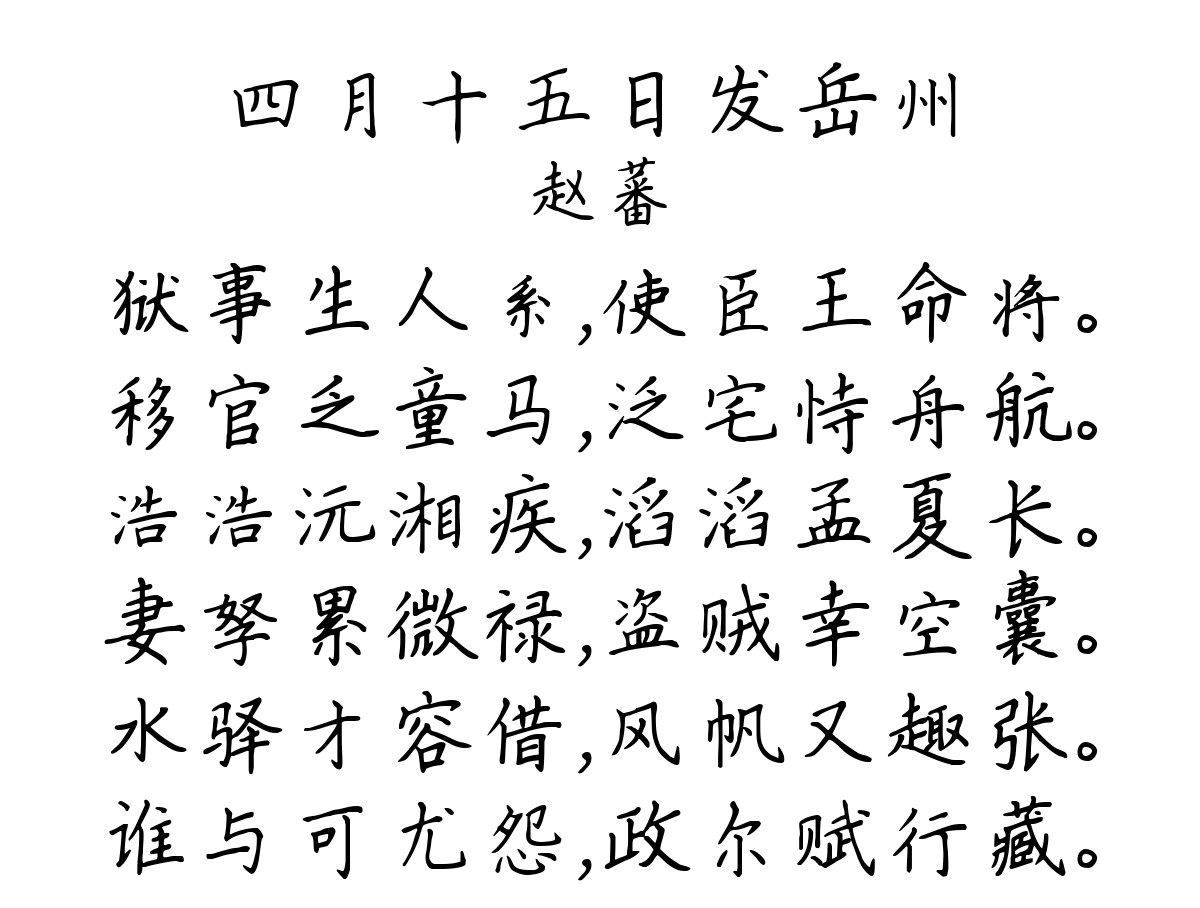 四月十五日发岳州
赵蕃
狱事生人系,使臣王命将。
移官乏童马,泛宅恃舟航。
浩浩沅湘疾,滔滔孟夏长。
妻孥累微禄,盗贼幸空囊。
水驿才容借,风帆又趣张。
谁与可尤怨,政尔赋行藏。